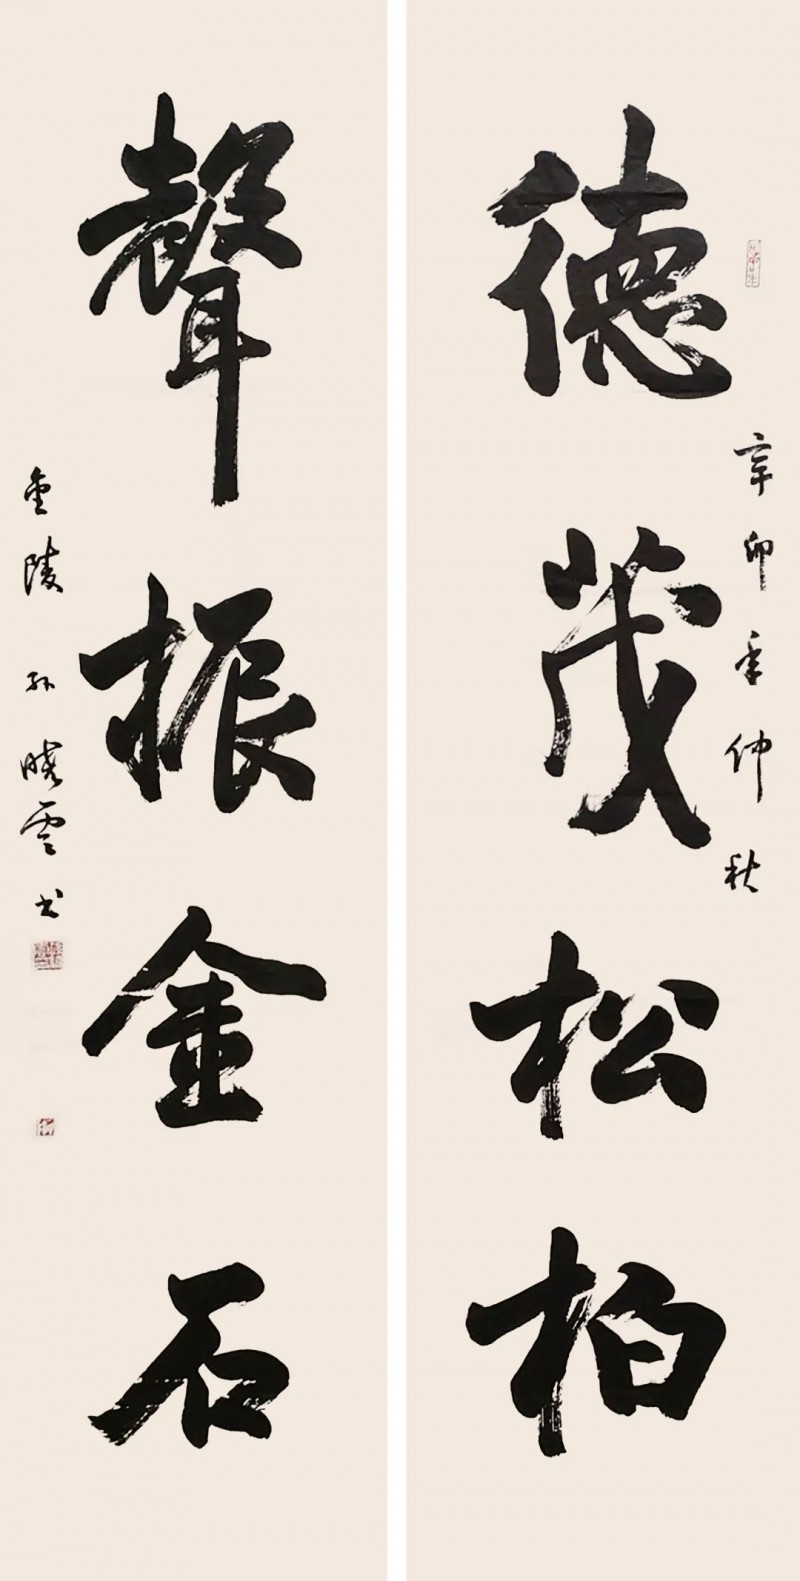 辛卯年仲秋
德茂松柏
聲振金石
金陵孙晓雲书